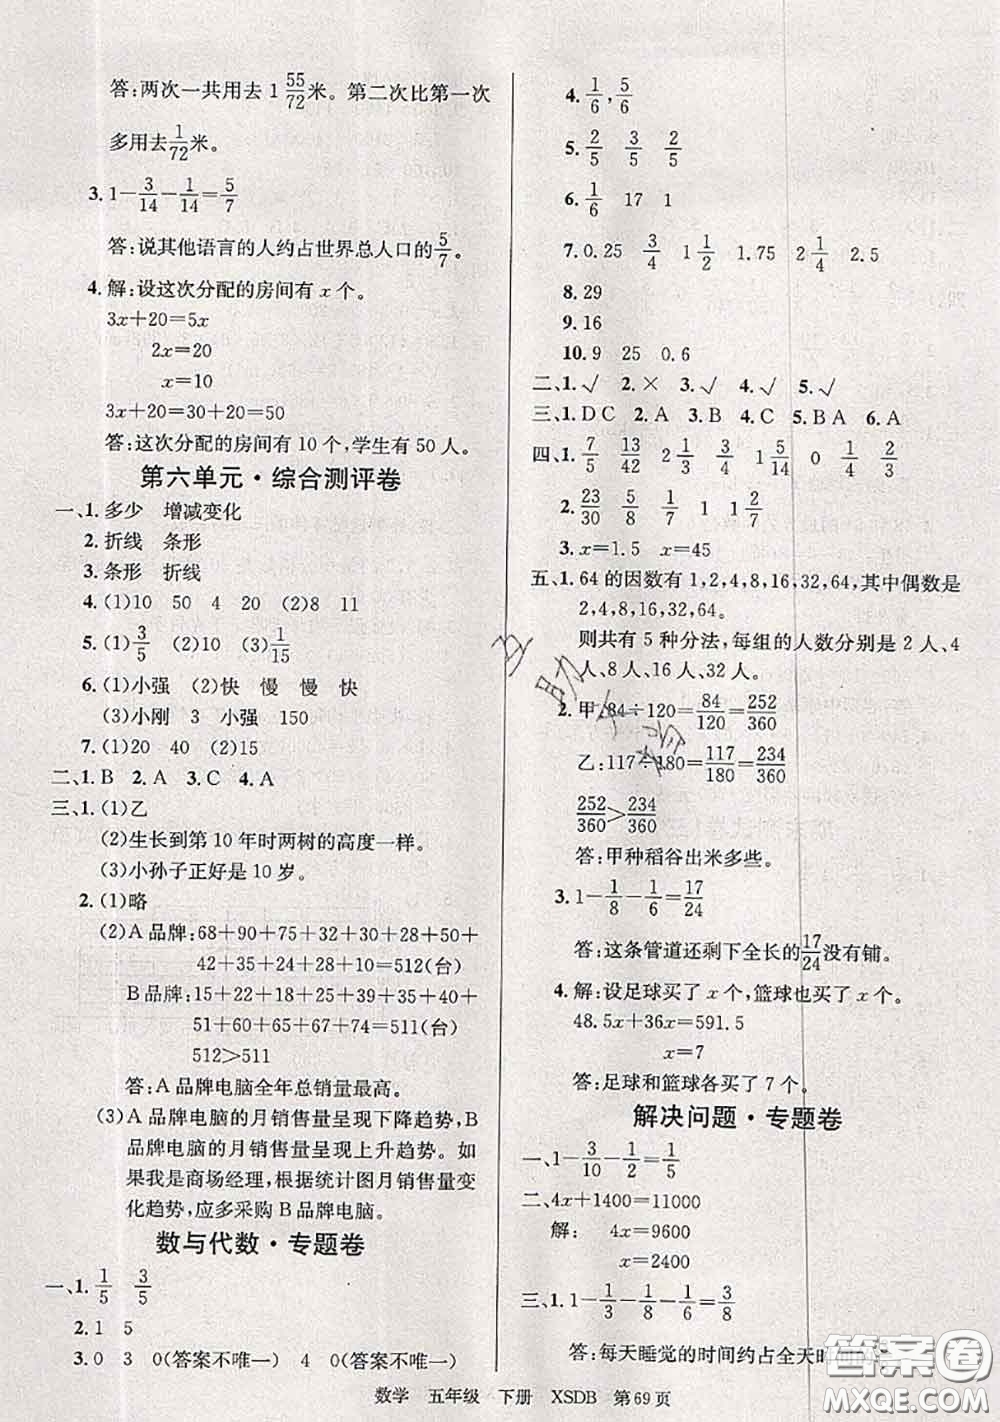 答:两次一共用去 1 55/72 米。第二次比第一次
多用去 1/72 米。
3. 1－3/14－1/14＝5/7
答:说其他语言的人约占世界总人口的 5/7。
4. 解:设这次分配的房间有 x 个。
3x+20=5x
2x=20
x=10
3x+20=30+20=50
答:这次分配的房间有 10 个,学生有 50 人。
第六单元·综合测评卷
一、1. 多少 增减变化
2. 折线 条形
3. 条形 折线
4. (1)10 50 4 20 (2)8 11
5. (1)3/5 (2)10 (3)1/15
6. (1)小强 (2)快 慢 慢 快
(3)小刚 3 小强 150
7. (1)20 40 (2)15
二、1. B 2. A 3. C 4. A
三、1. (1)乙
(2)生长到第 10 年时两树的高度一样。
(3)小孙子正好是 10 岁。
2. (1)略
(2)A 品牌:68+90+75+32+30+28+50+
42+35+24+28+10=512(台)
B 品牌:15+22+18+25+30+39+45+
51+60+65+67+74=511(台)
512>511
答:A 品牌电脑全年总销量最高。
(3)A 品牌电脑的月销售量呈现下降趋势,B
品牌电脑的月销售量呈现上升趋势。如
果我是商场经理,根据统计图月销售量变
化趋势,应多采购 B 品牌电脑。
数与代数·专题卷
一、1. 1/5 3/5
2. 1 5
3. 0 3 0(答案不唯一) 4 0(答案不唯一)
4. 1/6, 5/6
5. 2/5 3/5 2/5
6. 1/6 17 1
7. 0.25 3/4 1 1/2 1.75 2 1/4 2.5
8. 29
9. 16
10. 9 25 0.6
二、1. √ 2. × 3. √ 4. √ 5. √
三、1. D C 2. A 3. B 4. C 5. B A 6. A
四、1. 7/5 13/42 2 1/3 3/4 1 5/14 0 1/4 2/3
2. 23/30 5/8 1/7 1 1 1/2
3. x=1.5 x=45
五、1. 64 的因数有 1,2,4,8,16,32,64,其中偶数是
2,4,8,16,32,64。
则共有 5 种分法,每组的人数分别是 2 人、4
人、8 人、16 人、32 人。
2. 甲:84÷120=84/120=252/360
乙:117÷180=117/180=234/360
252/360>234/360
答:甲种稻谷出米多些。
3. 1－1/8－1/6＝17/24
答:这条管道还剩下全长的 17/24 没有铺。
4. 解:设足球买了 x 个,篮球也买了 x 个。
48.5x+36x=591.5
x=7
答:足球和篮球各买了 7 个。
解决问题·专题卷
一、1－3/10－1/2＝1/5
二、4x+1400=11000
解: 4x=9600
x=2400
三、1. 1－1/3－1/8－1/6＝3/8
答:每天睡觉的时间约占全天时间的
数学 五年级 下册 XSDB 第 69 页
答案圈
MXQE.COM